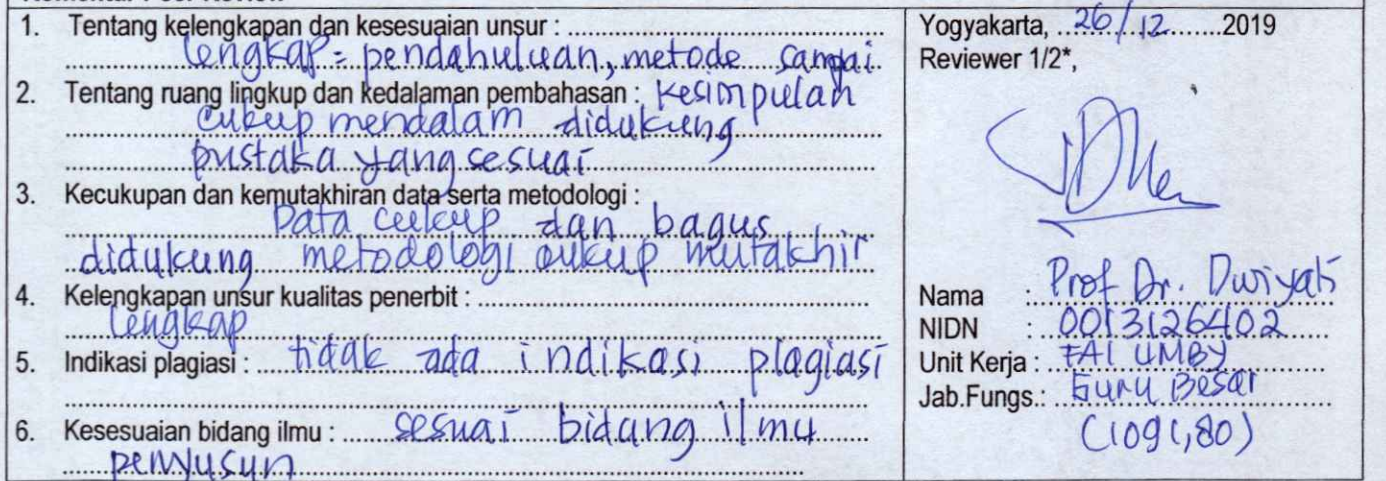 1. Tentang kelengkapan dan kesesuaian unsur :
lengkap = pendahuluan, metode sampai
2. Tentang ruang lingkup dan kedalaman pembahasan : kesimpulan
cukup mendalam didukung
pustaka yang sesuai
3. Kecukupan dan kemutakhiran data serta metodologi :
Data cukup dan bagus
didukung metodologi cukup mutakhir
4. Kelengkapan unsur kualitas penerbit :
lengkap
5. Indikasi plagiasi : tidak ada indikasi plagiasi
6. Kesesuaian bidang ilmu : sesuai bidang ilmu
penyusun
Yogyakarta, 26/12 2019
Reviewer 1/2*,
Nama : Prof Dr. Dwiyati
NIDN : 0013126402
Unit Kerja : FAI UMBY
Jab.Fungs.: Guru Besar
(1091,80)